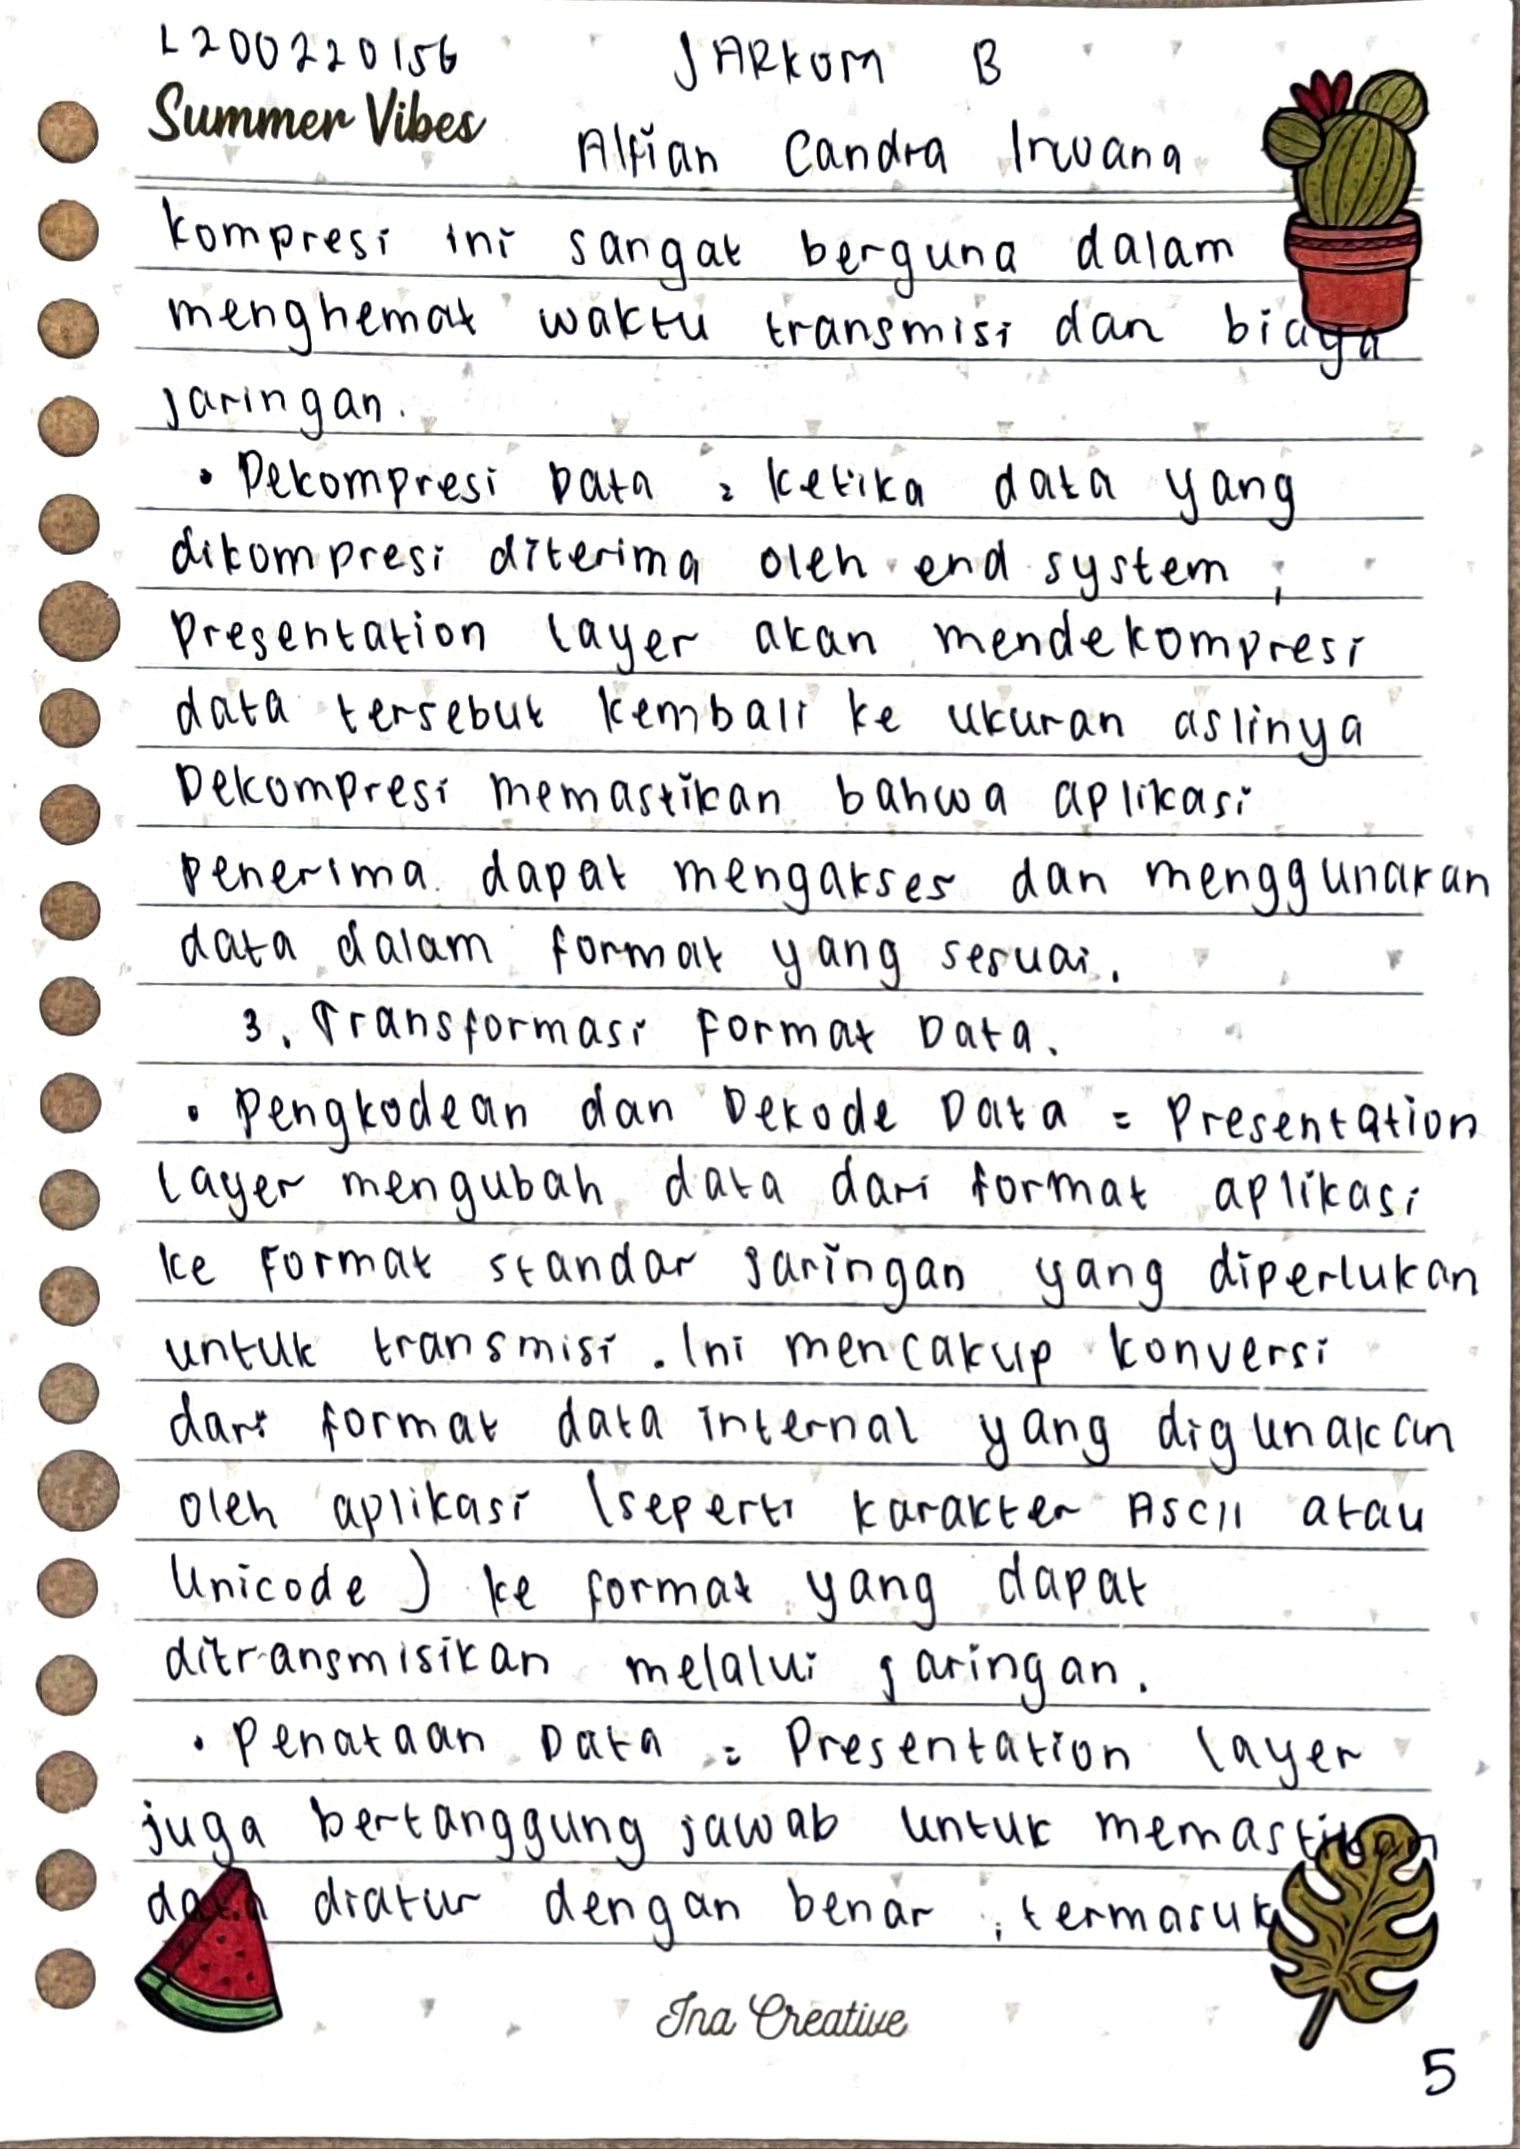 L200220156 JARKOM B
Summer Vibes
Alfian Candra Irwana
kompresi ini sangat berguna dalam
menghemat waktu transmisi dan biaya
jaringan.
• Dekompresi Data : ketika data yang
dikompresi diterima oleh end system,
presentation layer akan mendekompresi
data tersebut kembali ke ukuran aslinya
Dekompresi memastikan bahwa aplikasi
penerima dapat mengakses dan menggunakan
data dalam format yang sesuai.
3. Transformasi Format Data.
• Pengkodean dan Dekode Data = Presentation
layer mengubah data dari format aplikasi
ke format standar jaringan yang diperlukan
untuk transmisi. Ini mencakup konversi
dari format data internal yang digunakan
oleh aplikasi (seperti karakter ASCII atau
Unicode) ke format yang dapat
ditransmisikan melalui jaringan.
• Penataan Data : Presentation layer
juga bertanggung jawab untuk memastikan
data diatur dengan benar, termasuk
Ina Creative
5